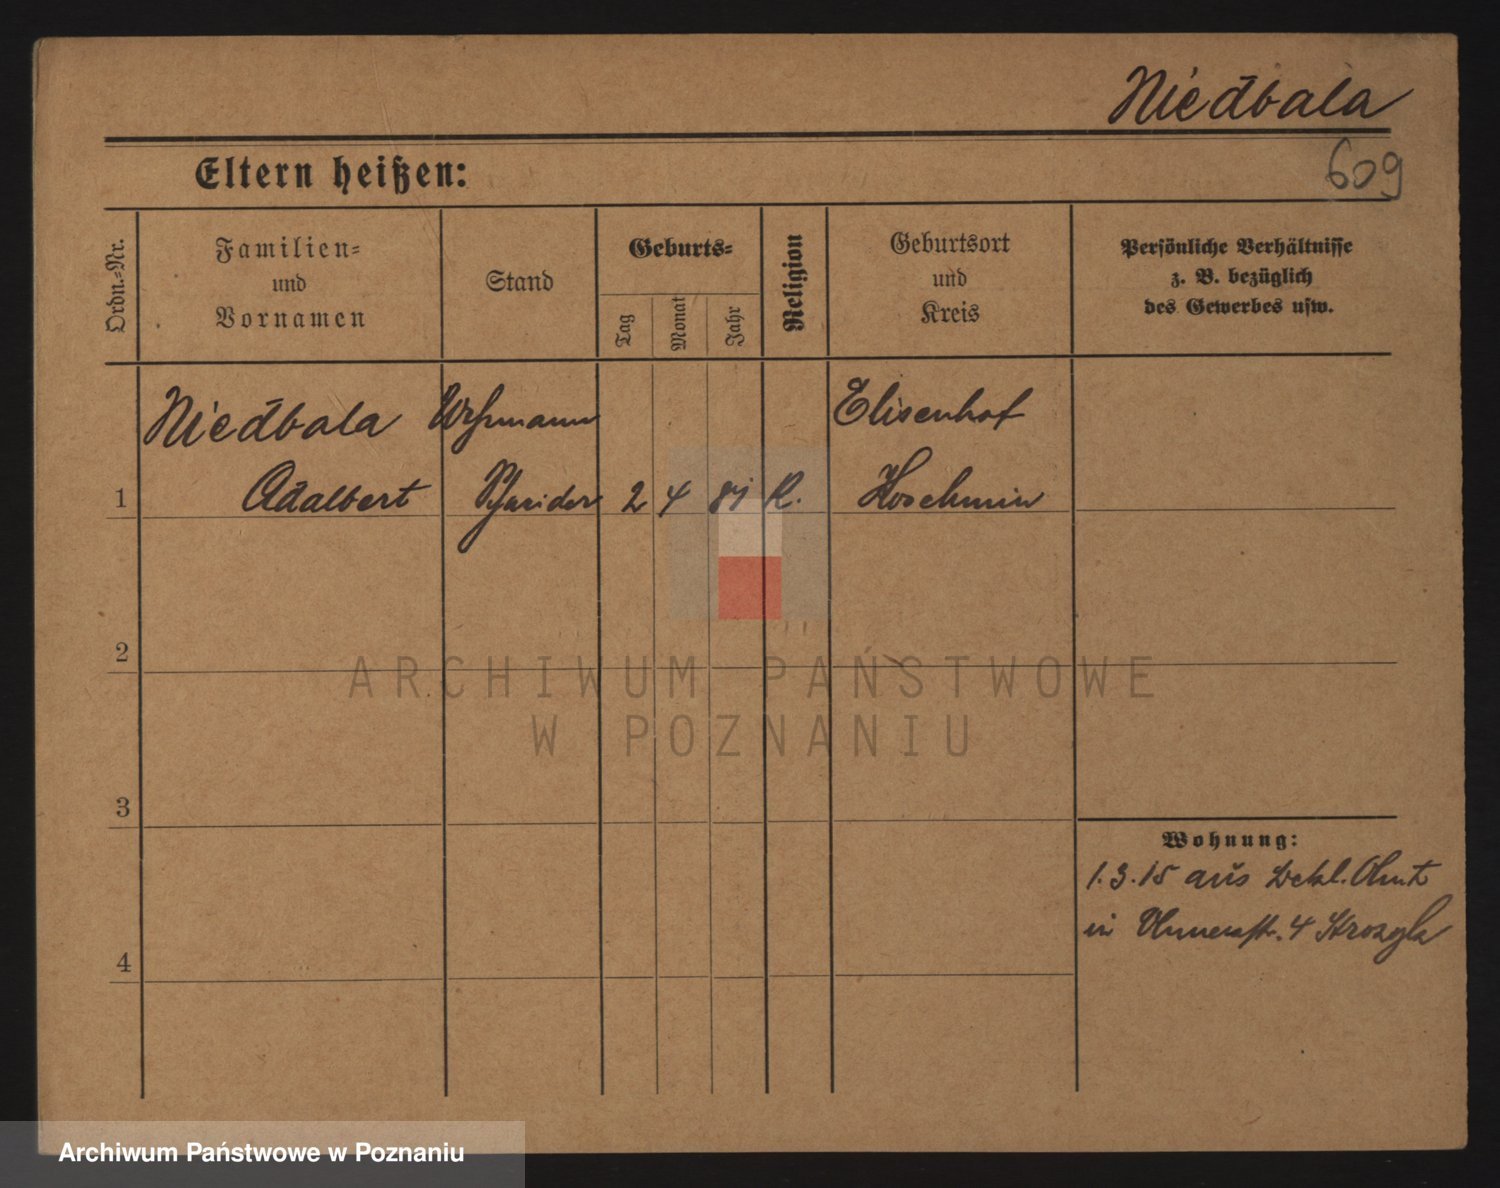 Niedbala
Eltern heißen:
609
Ordn.-Nr.
Familien-
und
Vornamen
Stand
Geburts-
Tag
Monat
Jahr
Religion
Geburtsort
und
Kreis
Persönliche Verhältnisse
z. B. bezüglich
des Gewerbes usw.
Niedbala Wehrmann Elisenhof
1 Adalbert Schneider 2 4 81 K. Koschmin
2
3
4
Wohnung:
1.3.15 aus
in 4
ARCHIWUM PAŃSTWOWE
W POZNANIU
Archiwum Państwowe w Poznaniu